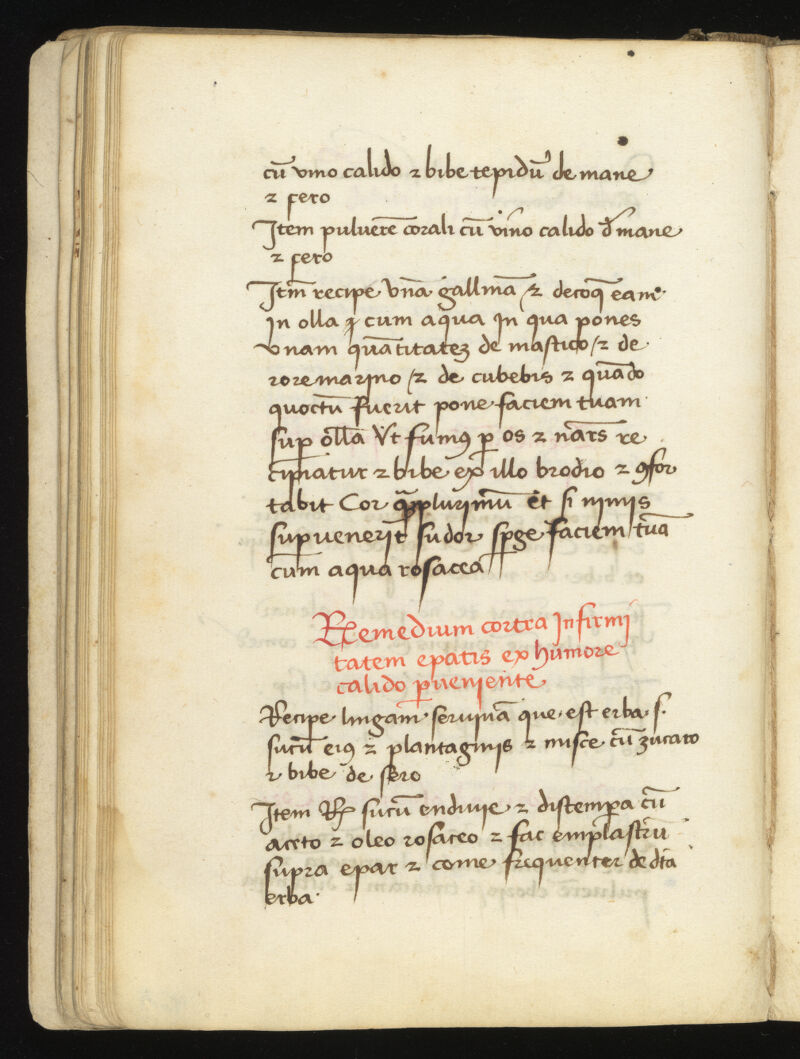 cū vino calido ⁊ bibe tepidū de mane
⁊ sero
Item puluerē corali cū vino calido d̄ mane
⁊ sero
Itm̄ recipe vnā gallinā ⁊ decoq̄ eam
in olla cum aqua in qua pones
vnam quātitateꝫ de mastico ⁊ de
rore marino ⁊ de cubebis ⁊ quādo
quoctū fuerit pone faciem tuam
suꝑ ollā vt fumꝰ ꝑ os ⁊ nar̄s re
cipiatur ⁊ bibe ex illo brodio ⁊ ꝯfor
tabit Cor plurimū et si nimis
suꝑuenerit sudor sꝑge faciem tuā
cum aqua rosacea
Remedium cortra infirmi
tatem epatis ex humore
calido ꝓueniente
Recipe lingam seruinā que est erba .s.
sucū eiꝰ ⁊ plantaginis ⁊ misce cū zucaro
⁊ bibe de sero
Item R̄ sucū endiuie ⁊ distempera cū
aceto ⁊ oleo rosaceo ⁊ fac emplastrū
supra epar ⁊ come frequenter de dc̄a
erba